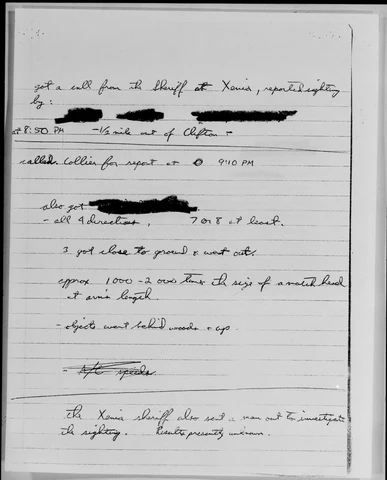 got a call from the sheriff at Xenia, reported sighting
by:
at 8:50 PM - 1/2 mile out of Clifton -
called Collier for report at 9:10 PM
also got
- all 4 directions, 7 or 8 at least.
3 got close to ground & went out.
approx 1000 - 2000 times the size of a match head
at arm's length
- objects went behind woods & up.
- A/C speeds
the Xenia sheriff also sent a man out to investigate
the sighting. Results presently unknown.